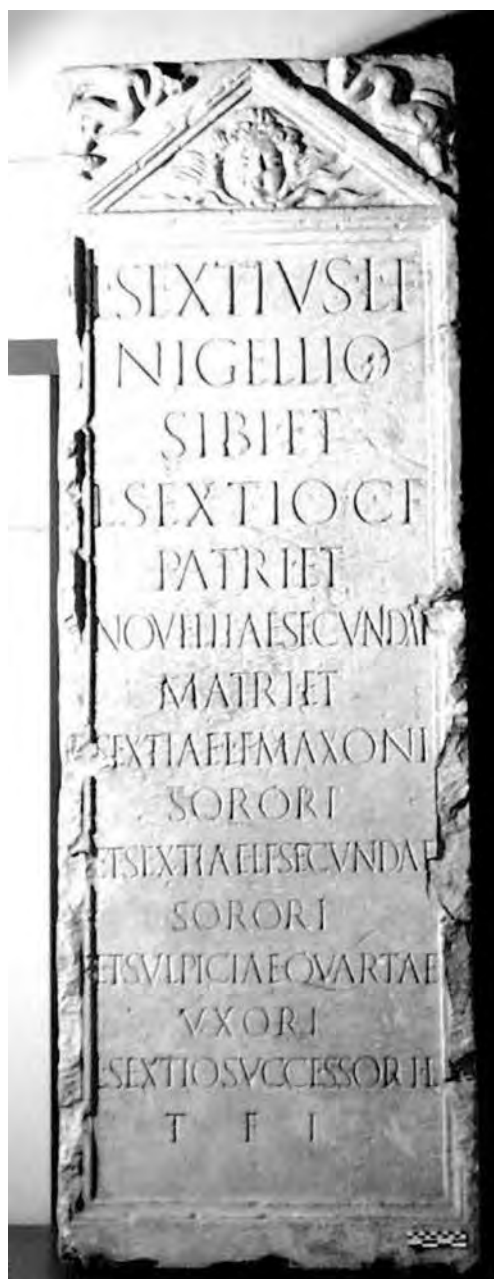 L·SEXTIVS·L·F
NIGELLIO
SIBI·ET
L·SEXTIO·C·F
PATRI·ET
NOVELLIAE SECVNDAE
MATRI·ET
SEXTIAE·L·F·MAXONI
SORORI
ET SEXTIAE L F SECVNDAE
SORORI
ET SVLPICIAE QVARTAE
VXORI
L·SEXTIO SVCCESSORI·L
T F I